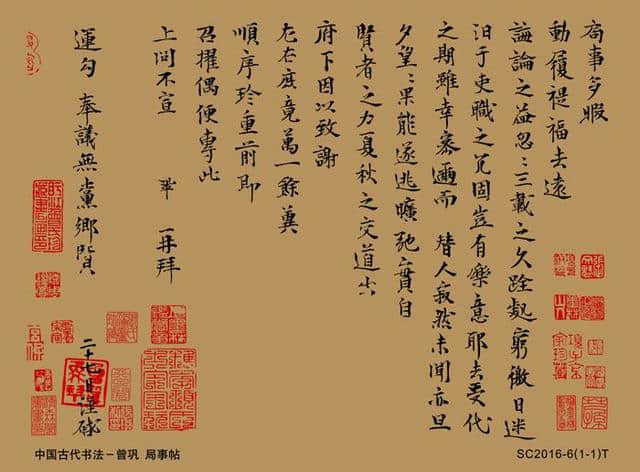 局事多暇
動履禔福去遠
誨論之益忽〻三載之久跧處窮徼日迷
汩于吏職之冗固豈有樂意耶去受代
之期雖幸密邇而替人寂然未聞亦旦
夕望〻果能遂逃曠弛實自
賢者之力夏秋之交道出
府下因以致謝
左右庶竟萬一餘冀
順序珍重前即
召擢偶便專此
上問不宣 鞏 再拜
運勾 奉議無黨鄉賢
二十七日謹啟
項子京家珍藏
中国古代书法－曾巩 局事帖
SC2016-6(1-1)T